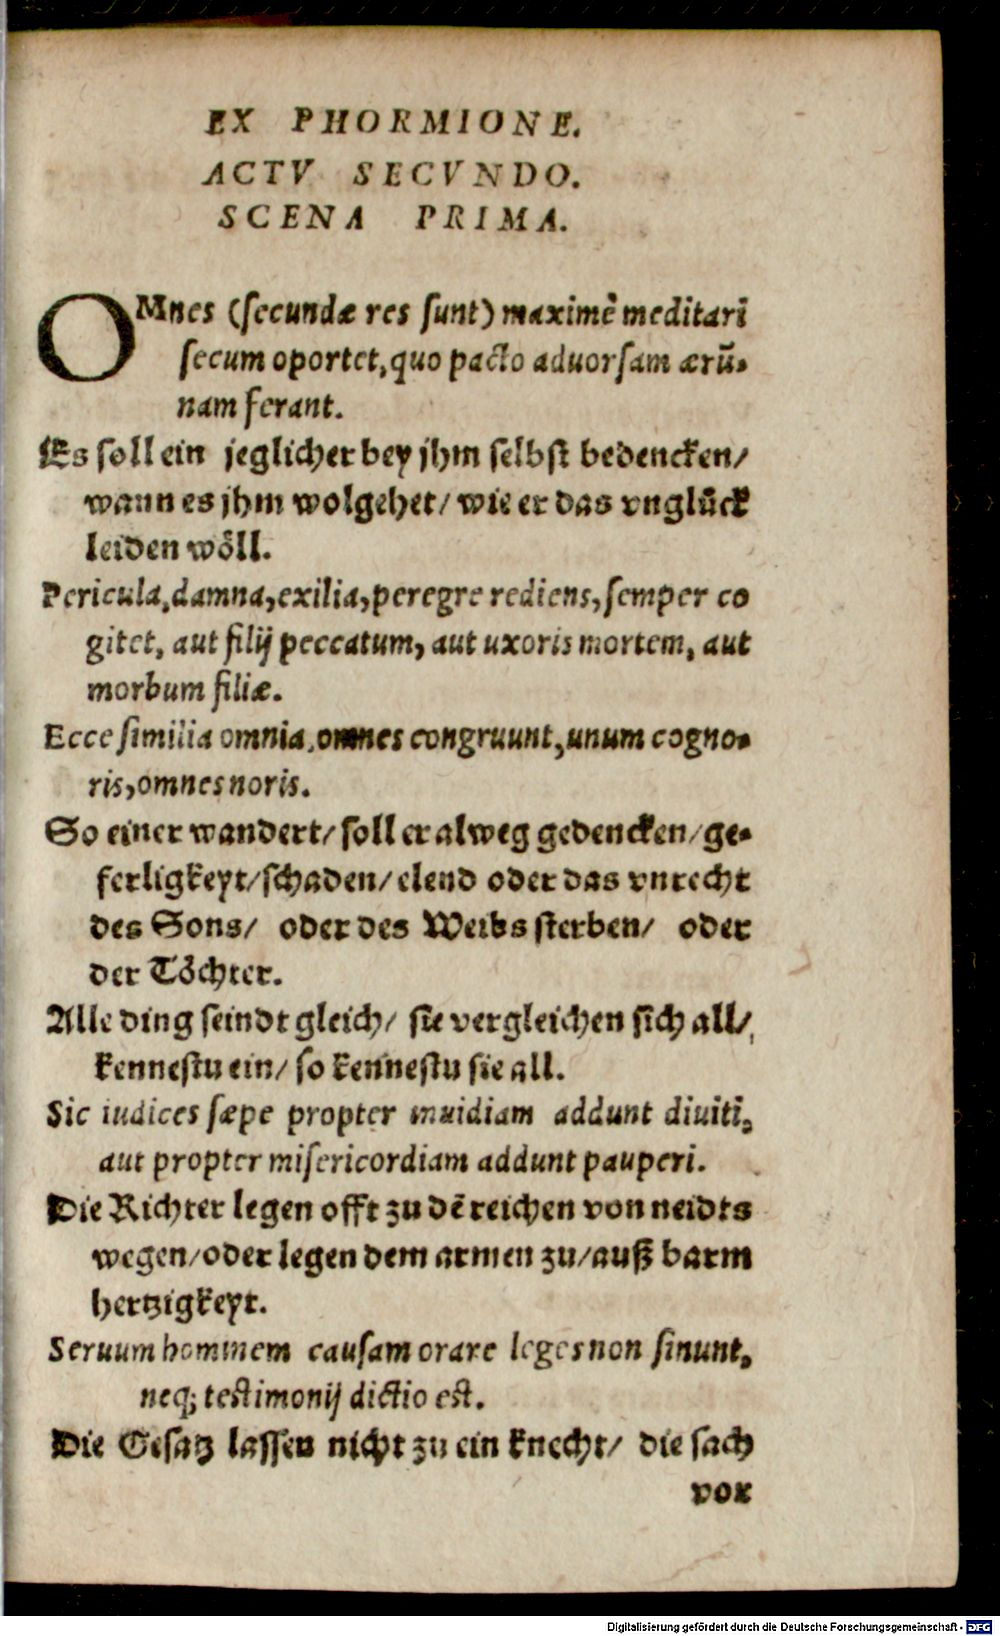 EX PHORMIONE.
ACTV SECVNDO.
SCENA PRIMA.
OMnes (secundæ res sunt) maximè meditari
secum oportet, quo pacto aduorsam ærũ-
nam ferant.
Es soll ein jeglicher bey jhm selbst bedencken/
wann es jhm wolgehet/ wie er das vnglůck
leiden wöll.
Pericula, damna, exilia, peregre rediens, semper co
gitet, aut filij peccatum, aut uxoris mortem, aut
morbum filiæ.
Ecce similia omnia, omnes congruunt, unum cogno-
ris, omnes noris.
So einer wandert/ soll er alweg gedencken/ ge-
ferligkeyt/ schaden/ elend oder das vnrecht
des Sons/ oder des Weibs sterben/ oder
der Töchter.
Alle ding seindt gleich/ sie vergleichen sich all/
kennestu ein/ so kennestu sie all.
Sic iudices sæpe propter inuidiam addunt diuiti,
aut propter misericordiam addunt pauperi.
Die Richter legen offt zu dẽ reichen von neidts
wegen/ oder legen dem armen zu/ auß barm
hertzigkeyt.
Seruum hominem causam orare leges non sinunt,
neq; testimonij dictio est.
Die Gesatz lassen nicht zu ein knecht/ die sach
vor
Digitalisierung gefördert durch die Deutsche Forschungsgemeinschaft - DFG